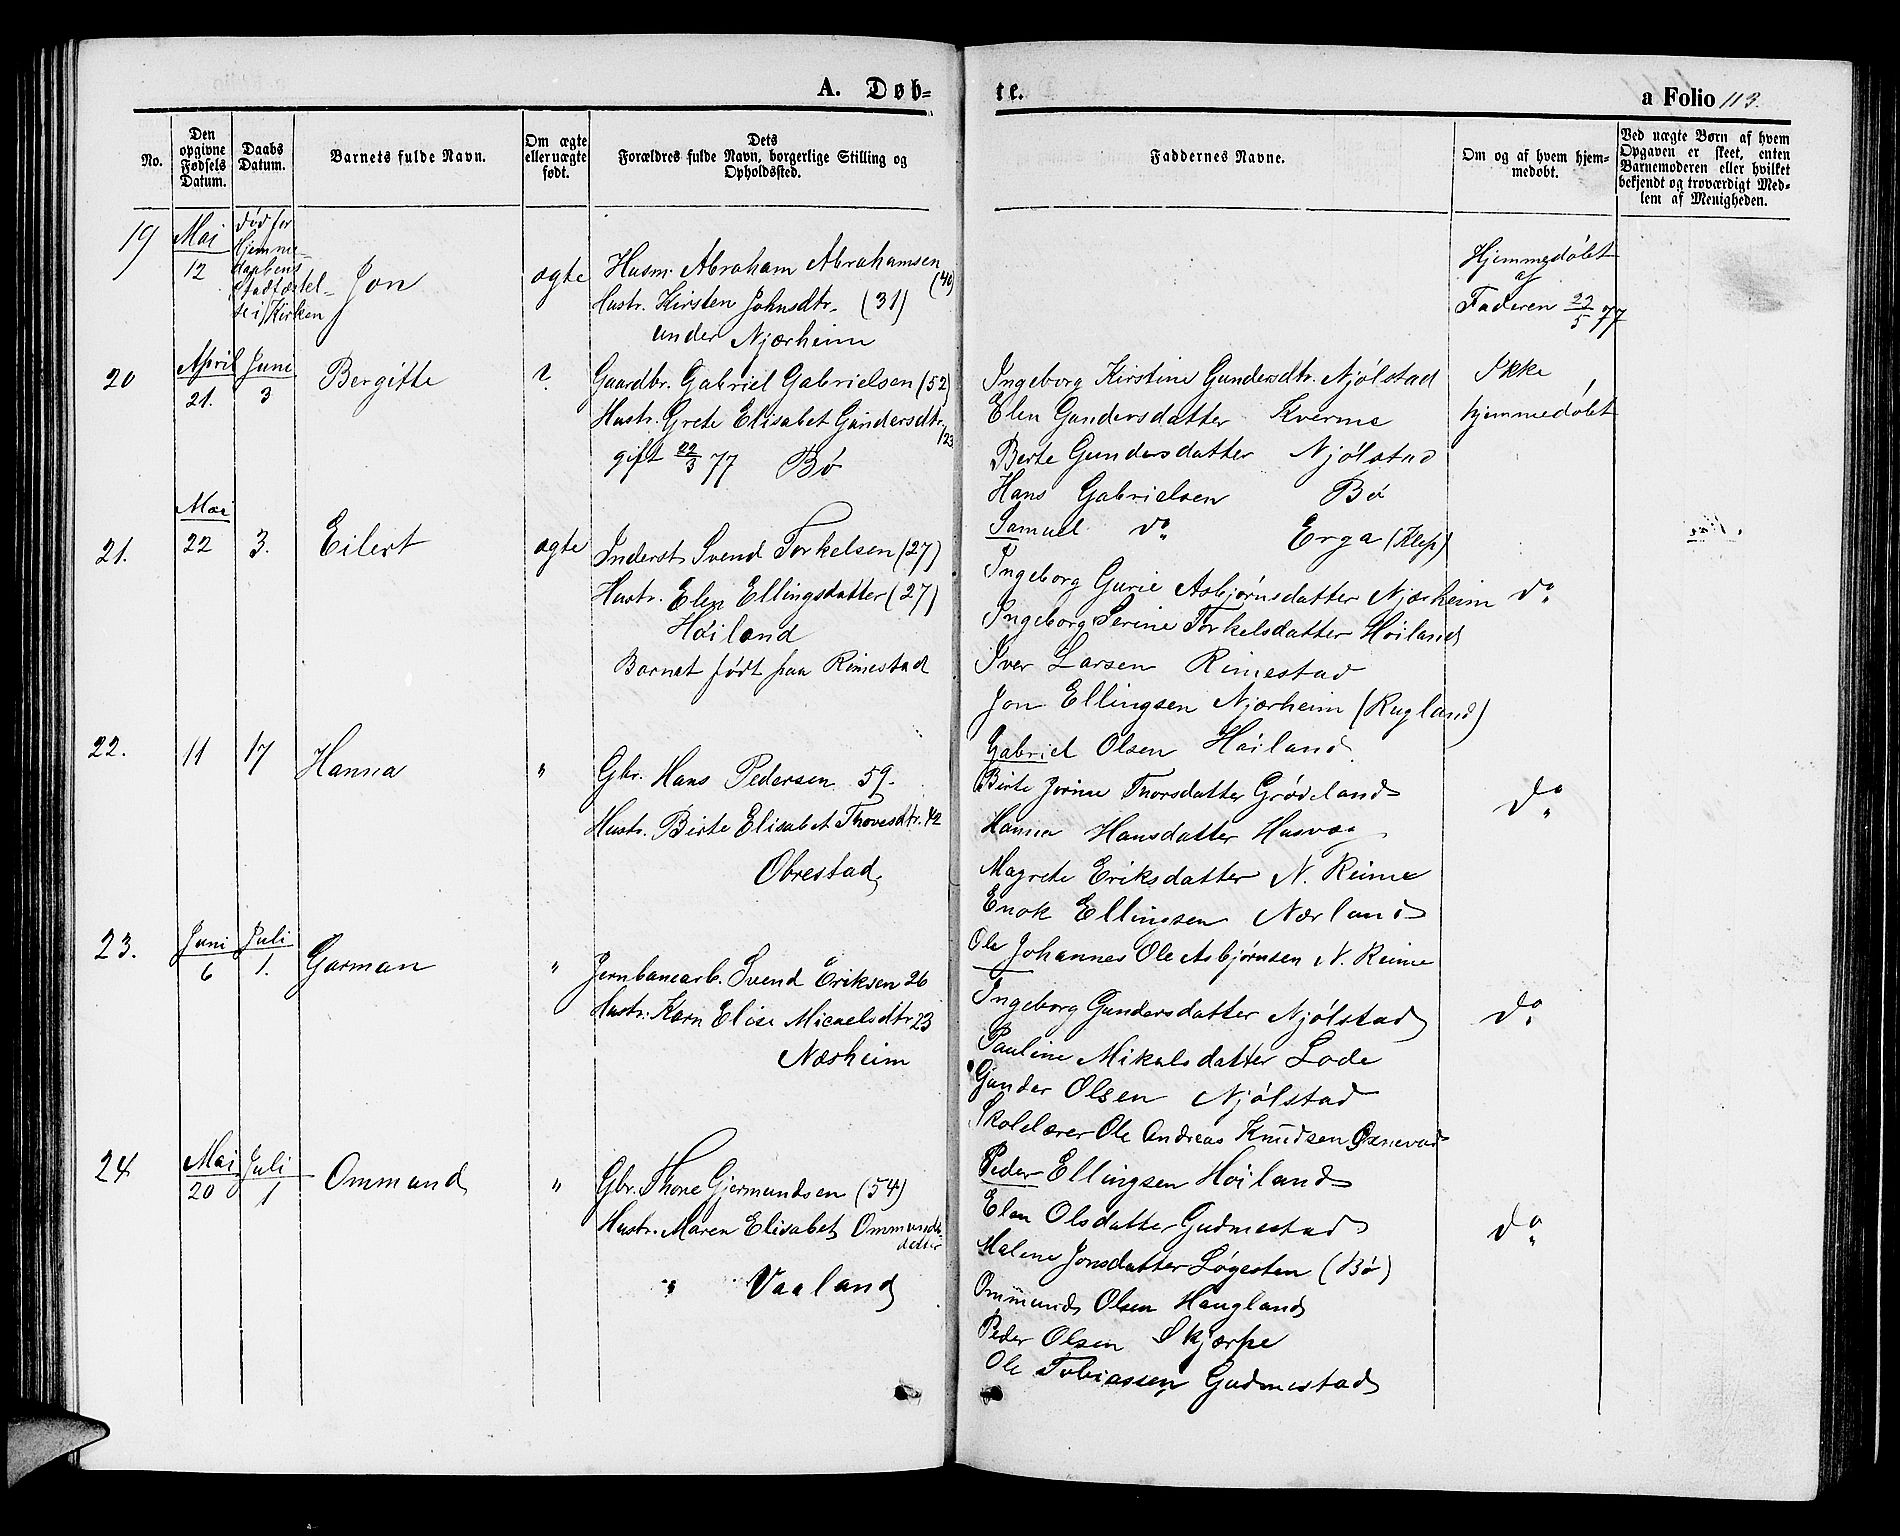 A. Døb-
te.
a Folio 113.
No.
Den opgivne Fødsels Datum.
Daabs Datum.
Barnets fulde Navn.
Om ægte eller uægte født.
Dets Forældres fulde Navn, borgerlige Stilling og Opholdssted.
Faddernes Navne.
Om og af hvem hjem-
medøbt.
Ved uægte Børn af hvem
Opgaven er skeet, enten
Barnemoderen eller hvilket
bekjendt og troværdigt Med-
lem af Menigheden.
19
Mai
12
død før
Hjemme-
daabens
Stadfæstel-
se i Kirken
Jon
ægte
Husm. Abraham Abrahamsen
(40)
Hustr. Kirsten Johnsdtr. (31)
under Njærheim
Hjemmedøbt
af
Faderen 22/5 77
20
April
21.
Juni
3
Bergitte
Gaardbr. Gabriel Gabrielsen (52)
Hustr. Grete Elisabet Gundersdtr.
/23
gift 22/3 77 Bø
Ingeborg Kirstine Gundersdtr. Njølstad
Elen Gundersdatter Kverme
Berte Gundersdatter Njølstad
Hans Gabrielsen Bø
Samuel do Erga (Klep)
Ikke
hjemmedøbt
21.
Mai
22
3.
Eilert
ægte
Inderst Svend Torkelsen (27)
Hustr. Elen Ellingsdatter (27)
Høiland
Barnet født paa Rimestad
Ingeborg Gurie Asbjørnsdatter Njærheim
Ingeborg Serine Torkelsdatter Høiland
Iver Larsen Rimestad
Jon Ellingsen Njærheim (Rugland)
Gabriel Olsen Høiland
do
22.
11
17
Hanna
"
Gbr. Hans Pedersen 59.
Hustr. Birte Elisabet Thoresdtr. 42
Obrestad
Birte Jorine Thorsdatter Grødeland
Hanna Hansdatter Husvæg
Magrete Eriksdatter N. Reime
Enok Ellingsen Nærland
Ole Johannes Ole Asbjørnsen N. Reime
do
23.
Juni
6
Juli
1.
Garman
"
Jernbanearb. Svend Eriksen 26
Hustr. Karn Elise Micaelsdtr 23
Nærheim
Ingeborg Gundersdatter Njølstad
Pauline Mikalsdatter Lode
Gunder Olsen Njølstad
Skolelærer Ole Andreas Knudsen
Peder Ellingsen Høiland
do
24
Mai
20
Juli
1
Ommund
"
Gbr. Thore Gjermundsen (54)
Hustr. Maren Elisabet Ommunds-
datter
" Vaaland
Elen Olsdatter Gudmestad
Malene Jonsdatter Løgesten (Bø)
Ommund Olsen Haugland
Peder Olsen Skjærpe
Ole Tobiassen Gudmestad
do